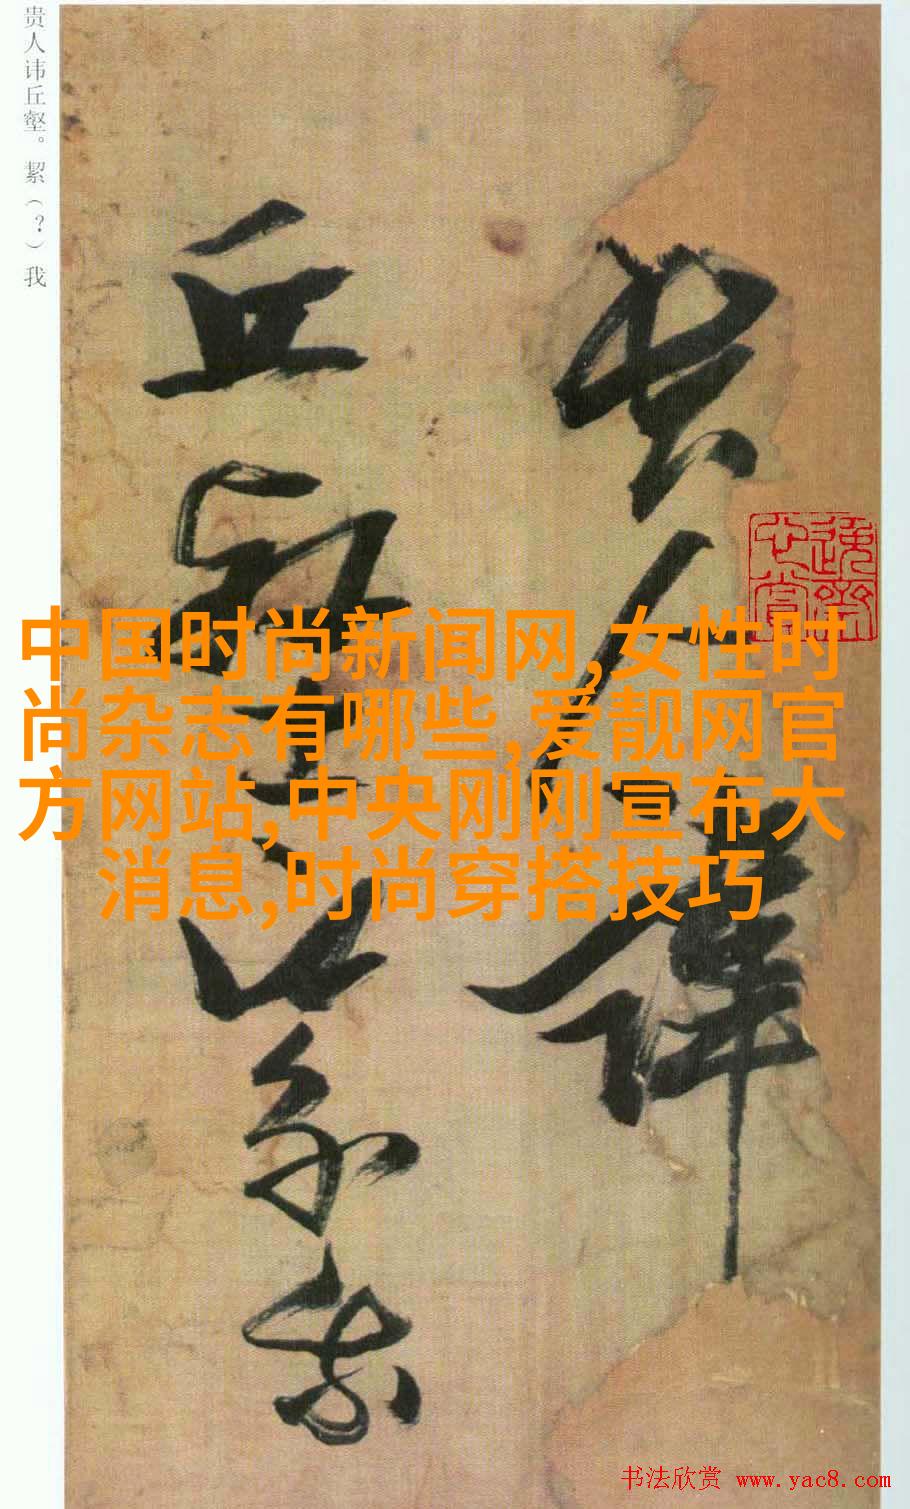 贵人讳丘壑。絜（？）我
贵人讳
丘壑
絜我
中国时尚新闻网,女性时
尚杂志有哪些,爱靓网官
方网站,中央刚刚宣布大
消息,时尚穿搭技巧
书法欣赏 www.yac8.com